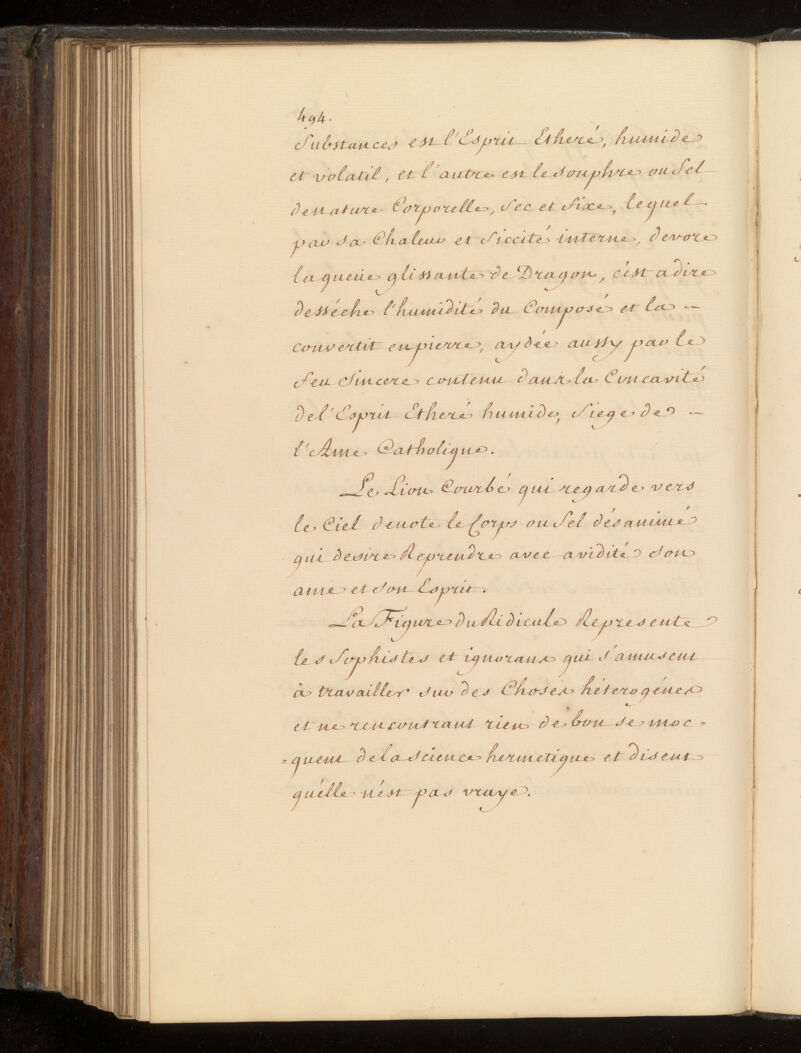 494.
Substances est l'Esprit Etheré, humide
et volatil, et l'autre est le souphre ou Sel
de nature Corporelle, Sec et Fixe, lequel
par sa Chaleur et Siccité interne, devore
la queüe glissante de Dragon, c'est a dire
desséche l'humidité du Composé et la —
convertit en pierre, aydée aussy par le
Feu Sincere contenu dans la Concavité
de l'Esprit Etheré humide, Siege de —
l'Ame Catholique.
Le Lion Courbé qui regarde vers
le Ciel denote le Corps ou Sel désanimé
qui desire Reprendre avec avidité son
ame et son Esprit.
La Figure du Ridicule Represente
les Sophistes et ignorans qui s'amusent
à travailler sur des Choses héterogénes
et ne rencontrant rien de bon se moc =
= quent de la science hermetique et disent
qu'elle n'est pas vraye.